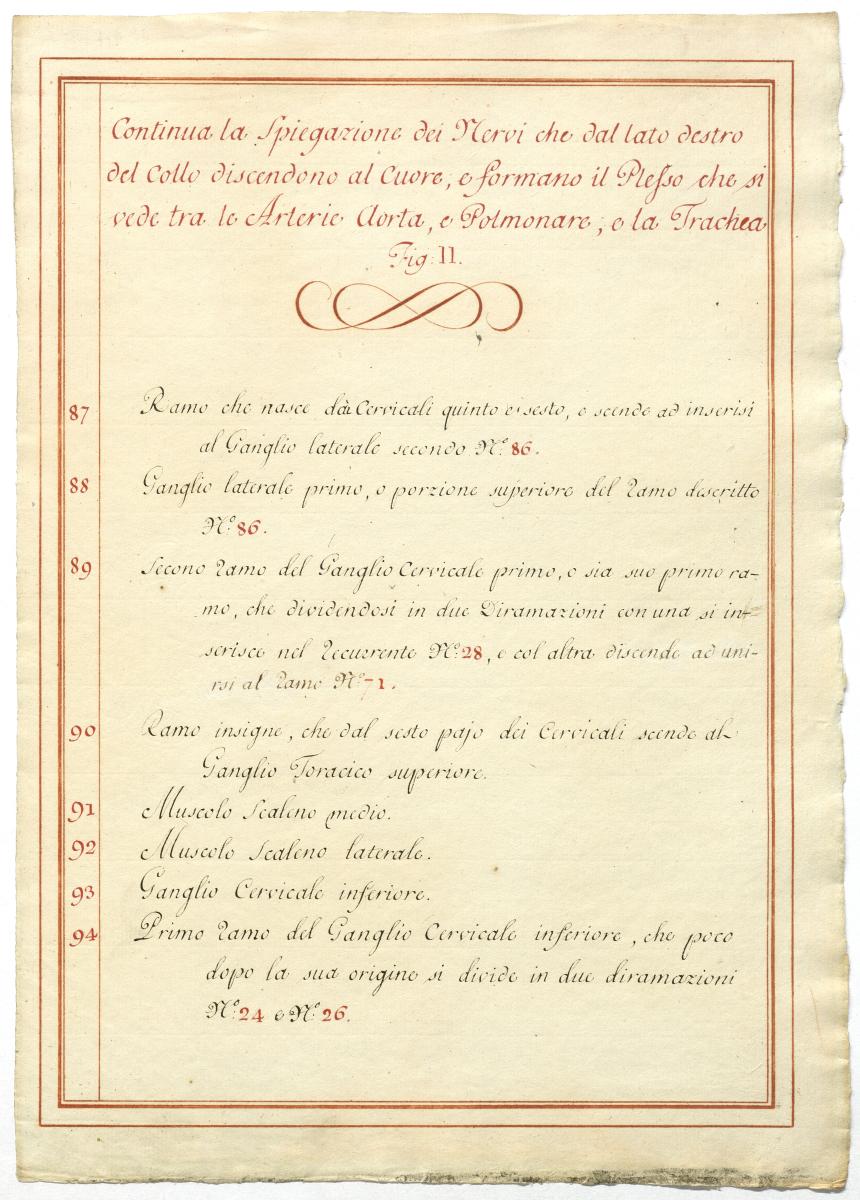 Continua la Spiegazione dei Nervi che dal lato destro
del Collo discendono al Cuore, e formano il Plesso che si
vede tra le Arterie Aorta, e Polmonare, e la Trachea
Fig: 11.
87 Ramo che nasce dai Cervicali quinto e sesto, e scende ad inserisi
al Ganglio laterale secondo N.º 86.
88 Ganglio laterale primo, o porzione superiore del Ramo descritto
N.º 86.
89 Secono Ramo del Ganglio Cervicale primo, o sia suo primo ra-
mo, che dividendosi in due Diramazioni con una si in-
serisce nel Recurrente N.º 28, e col altra discende ad uni-
rsi al Ramo N.º 71.
90 Ramo insigne, che dal sesto pajo dei Cervicali scende al
Ganglio Toracico superiore.
91 Muscolo Scaleno medio.
92 Muscolo Scaleno laterale.
93 Ganglio Cervicale inferiore.
94 Primo Ramo del Ganglio Cervicale inferiore, che poco
dopo la sua origine si divide in due diramazioni
N.º 24 e N.º 26.